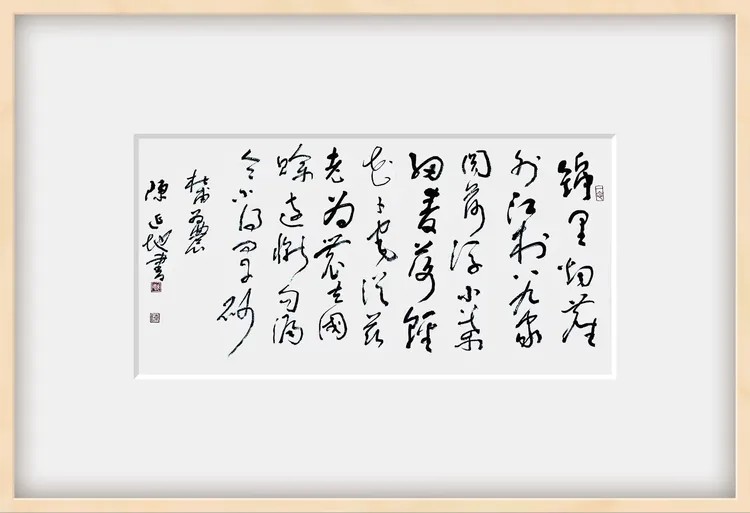 錦里烟塵
外江村八九家
圓荷浮小葉
細麥落輕
花卜宅從茲
老為農去國
賒遠慚勾漏
令不得問丹砂
杜甫為農
陳 地書